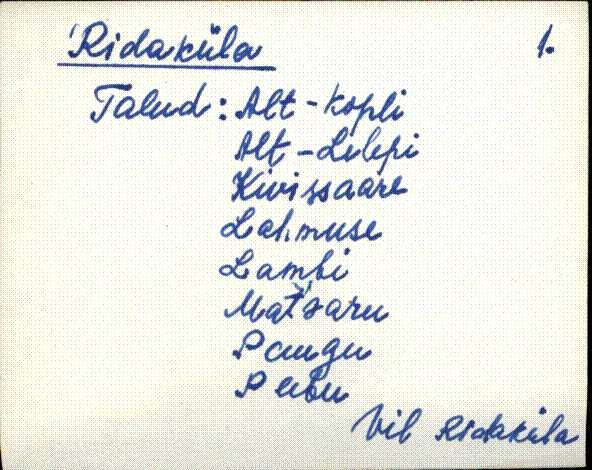 Ridaküla 1.
Talud: Alt-Kopli
Alt-Lelepi
Kivissaare
Lahmuse
Lambi
Matsaru
Paugu
Vil Ridaküla